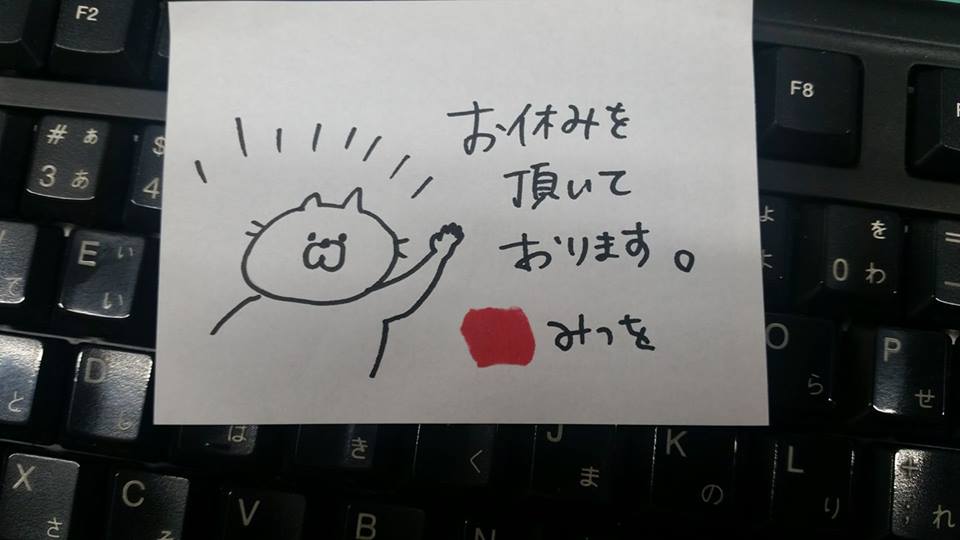 お休みを
頂いて
おります。
みつを
F2
F8
# ぁ
3 あ
$
4
E ぃ
い
を
0 わ
て
D
し
と
O
ら
P
せ
は
き
く
J
ま
K
の
L
り
れ
X
さ
C
そ
V
B
N